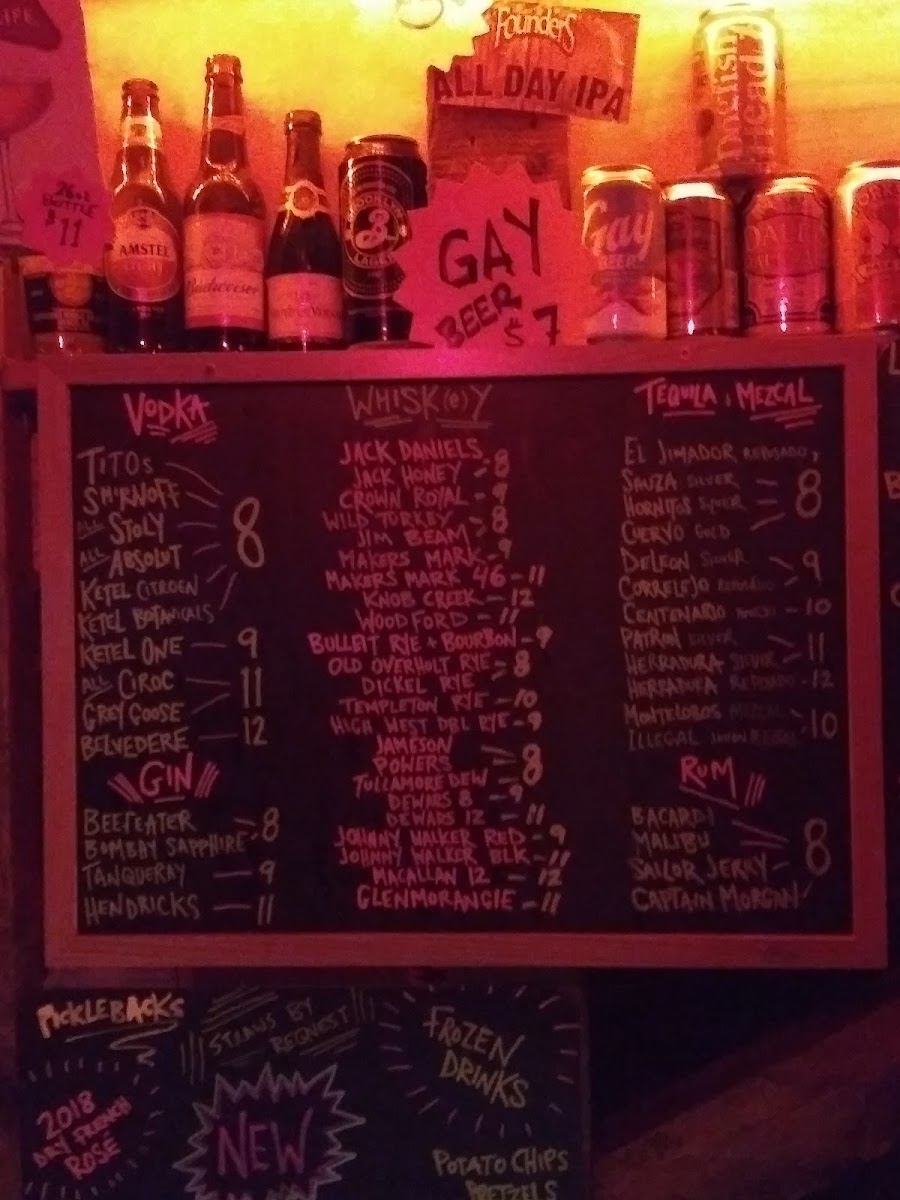 LIFE
26oz
BOTTLE
$11
Founders
ALL DAY IPA
Dogfish
Head
AMSTEL
LIGHT
Budweiser
BROOKLYN
B
LAGER
GAY
BEER
$7
Gay
BEER
VODKA
TITOS
SMIRNOFF
ALL STOLY
ALL ABSOLUT
8
KETEL CITROEN
KETEL BOTANICALS
KETEL ONE - 9
ALL CIROC
GREY GOOSE
11
BELVEDERE - 12
GIN
BEEFEATER
BOMBAY SAPPHIRE
8
TANQUERAY - 9
HENDRICKS - 11
WHISK(E)Y
JACK DANIELS
JACK HONEY - 8
CROWN ROYAL - 9
WILD TURKEY
JIM BEAM
8
MAKERS MARK - 9
MAKERS MARK '46 - 11
KNOB CREEK - 12
WOODFORD - 11
BULLEIT RYE + BOURBON - 9
OLD OVERHOLT RYE
DICKEL RYE
8
TEMPLETON RYE - 10
HIGH WEST DBL RYE - 9
JAMESON
POWERS
TULLAMORE DEW
8
DEWARS 8 - 9
DEWARS 12 - 11
JOHNNY WALKER RED - 9
JOHNNY WALKER BLK - 11
MACALLAN 12 - 12
GLENMORANGIE - 11
TEQUILA & MEZCAL
EL JIMADOR REPOSADO
SAUZA SILVER
HORNITOS SILVER
CUERVO GOLD
8
DELEON SILVER
CORRELEJO REPOSADO
9
CENTENARIO - 10
PATRON SILVER
HERRADURA SILVER
11
HERRADURA REPOSADO - 12
MONTELOBOS MEZCAL
ILLEGAL
10
RUM
BACARDI
MALIBU
SAILOR JERRY
CAPTAIN MORGAN
8
PICKLEBACKS
STRAWS BY
REQUEST
FROZEN
DRINKS
2018
DRY FRENCH
ROSE
NEW
POTATO CHIPS
PRETZELS